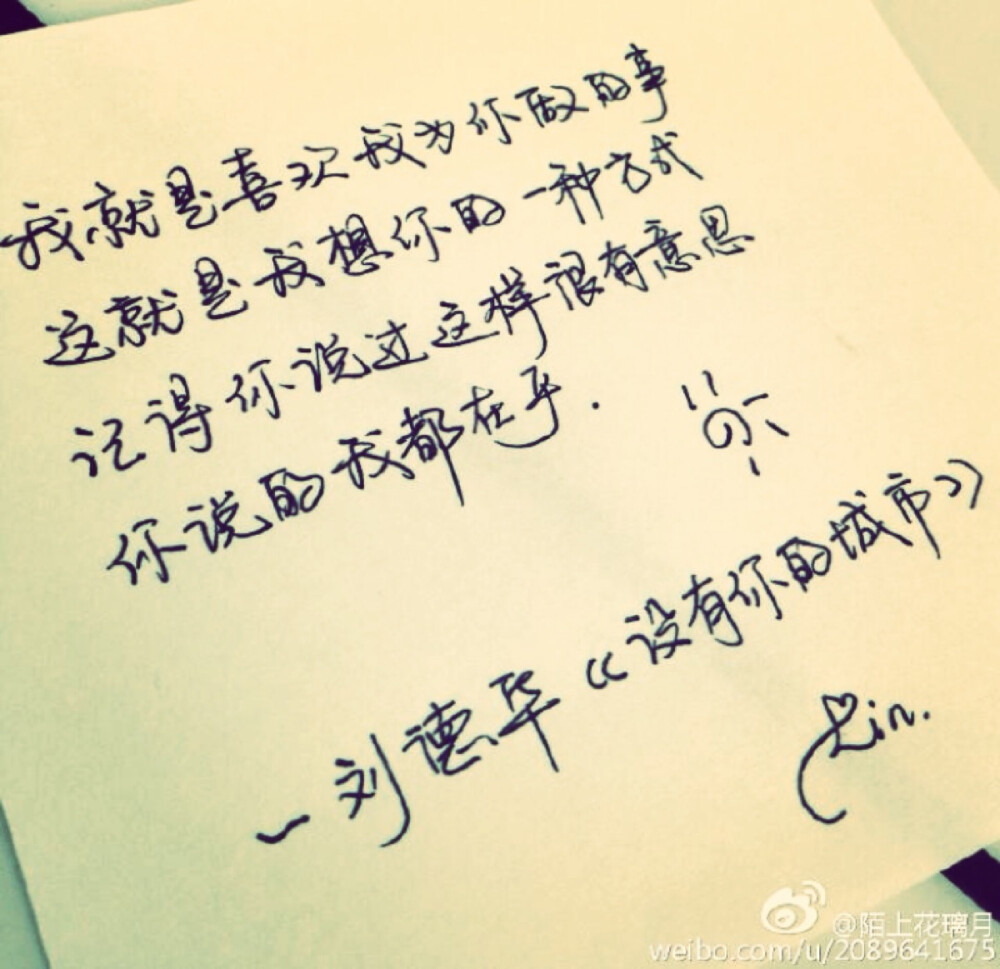 我就是喜欢我为你做的事
这就是我想你的一种方式
记得你说过这样很有意思
你说的我都在乎.
—刘德华《没有你的城市》
Lin.
@陌上花璃月
weibo.com/u/2089641675